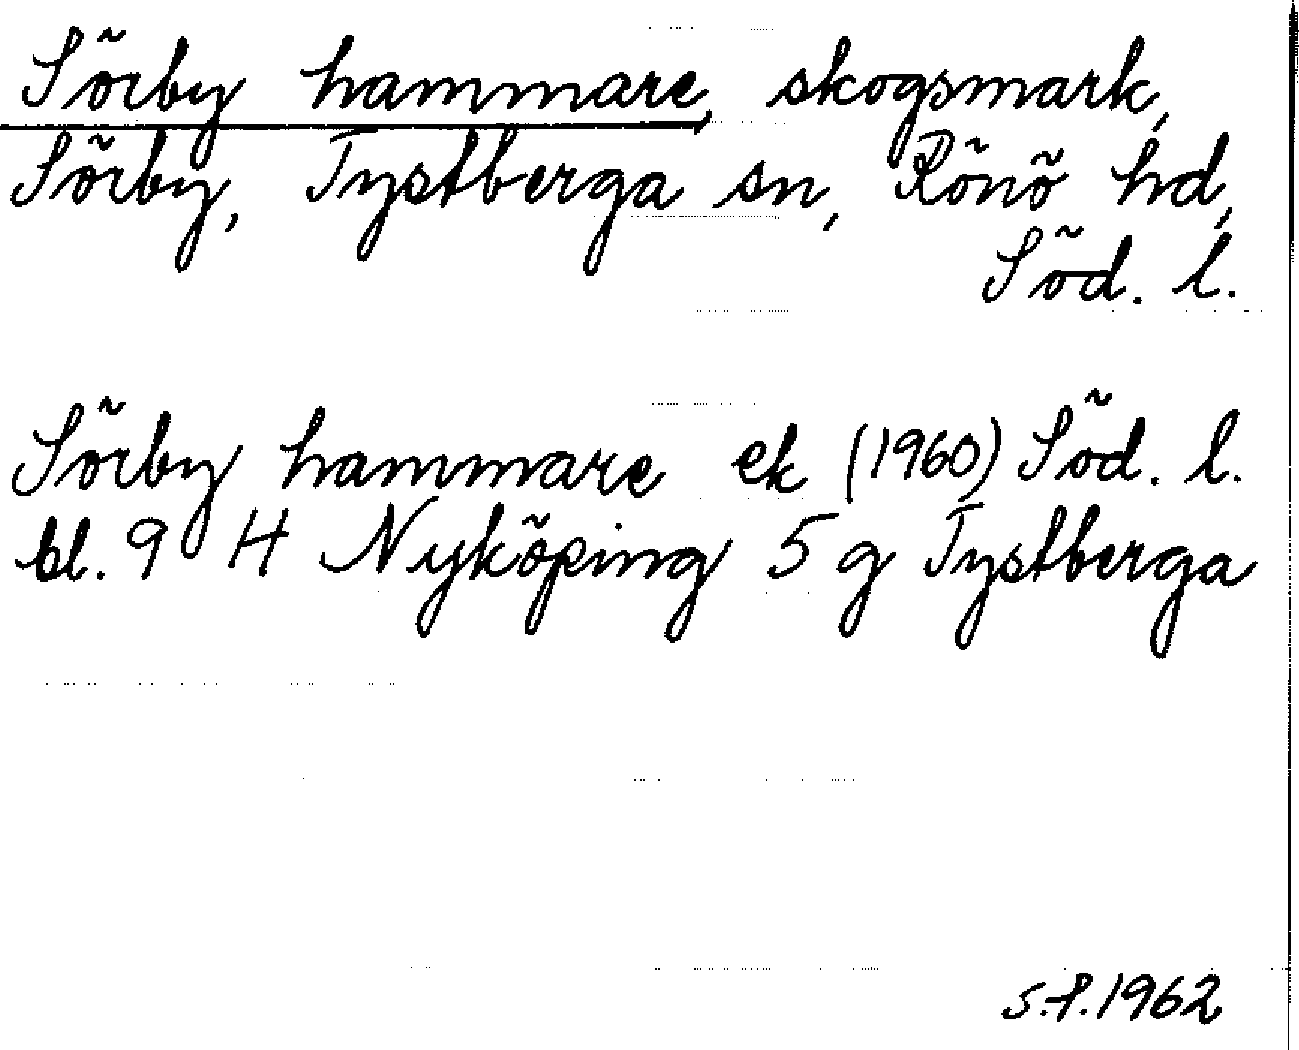 Sörby hammare, skogsmark,
Sörby, Tystberga sn, Rönö hd,
Söd. l.
Sörby hammare ek (1960) Söd. l.
bl. 9 H Nyköping 5 g Tystberga
S.P. 1962